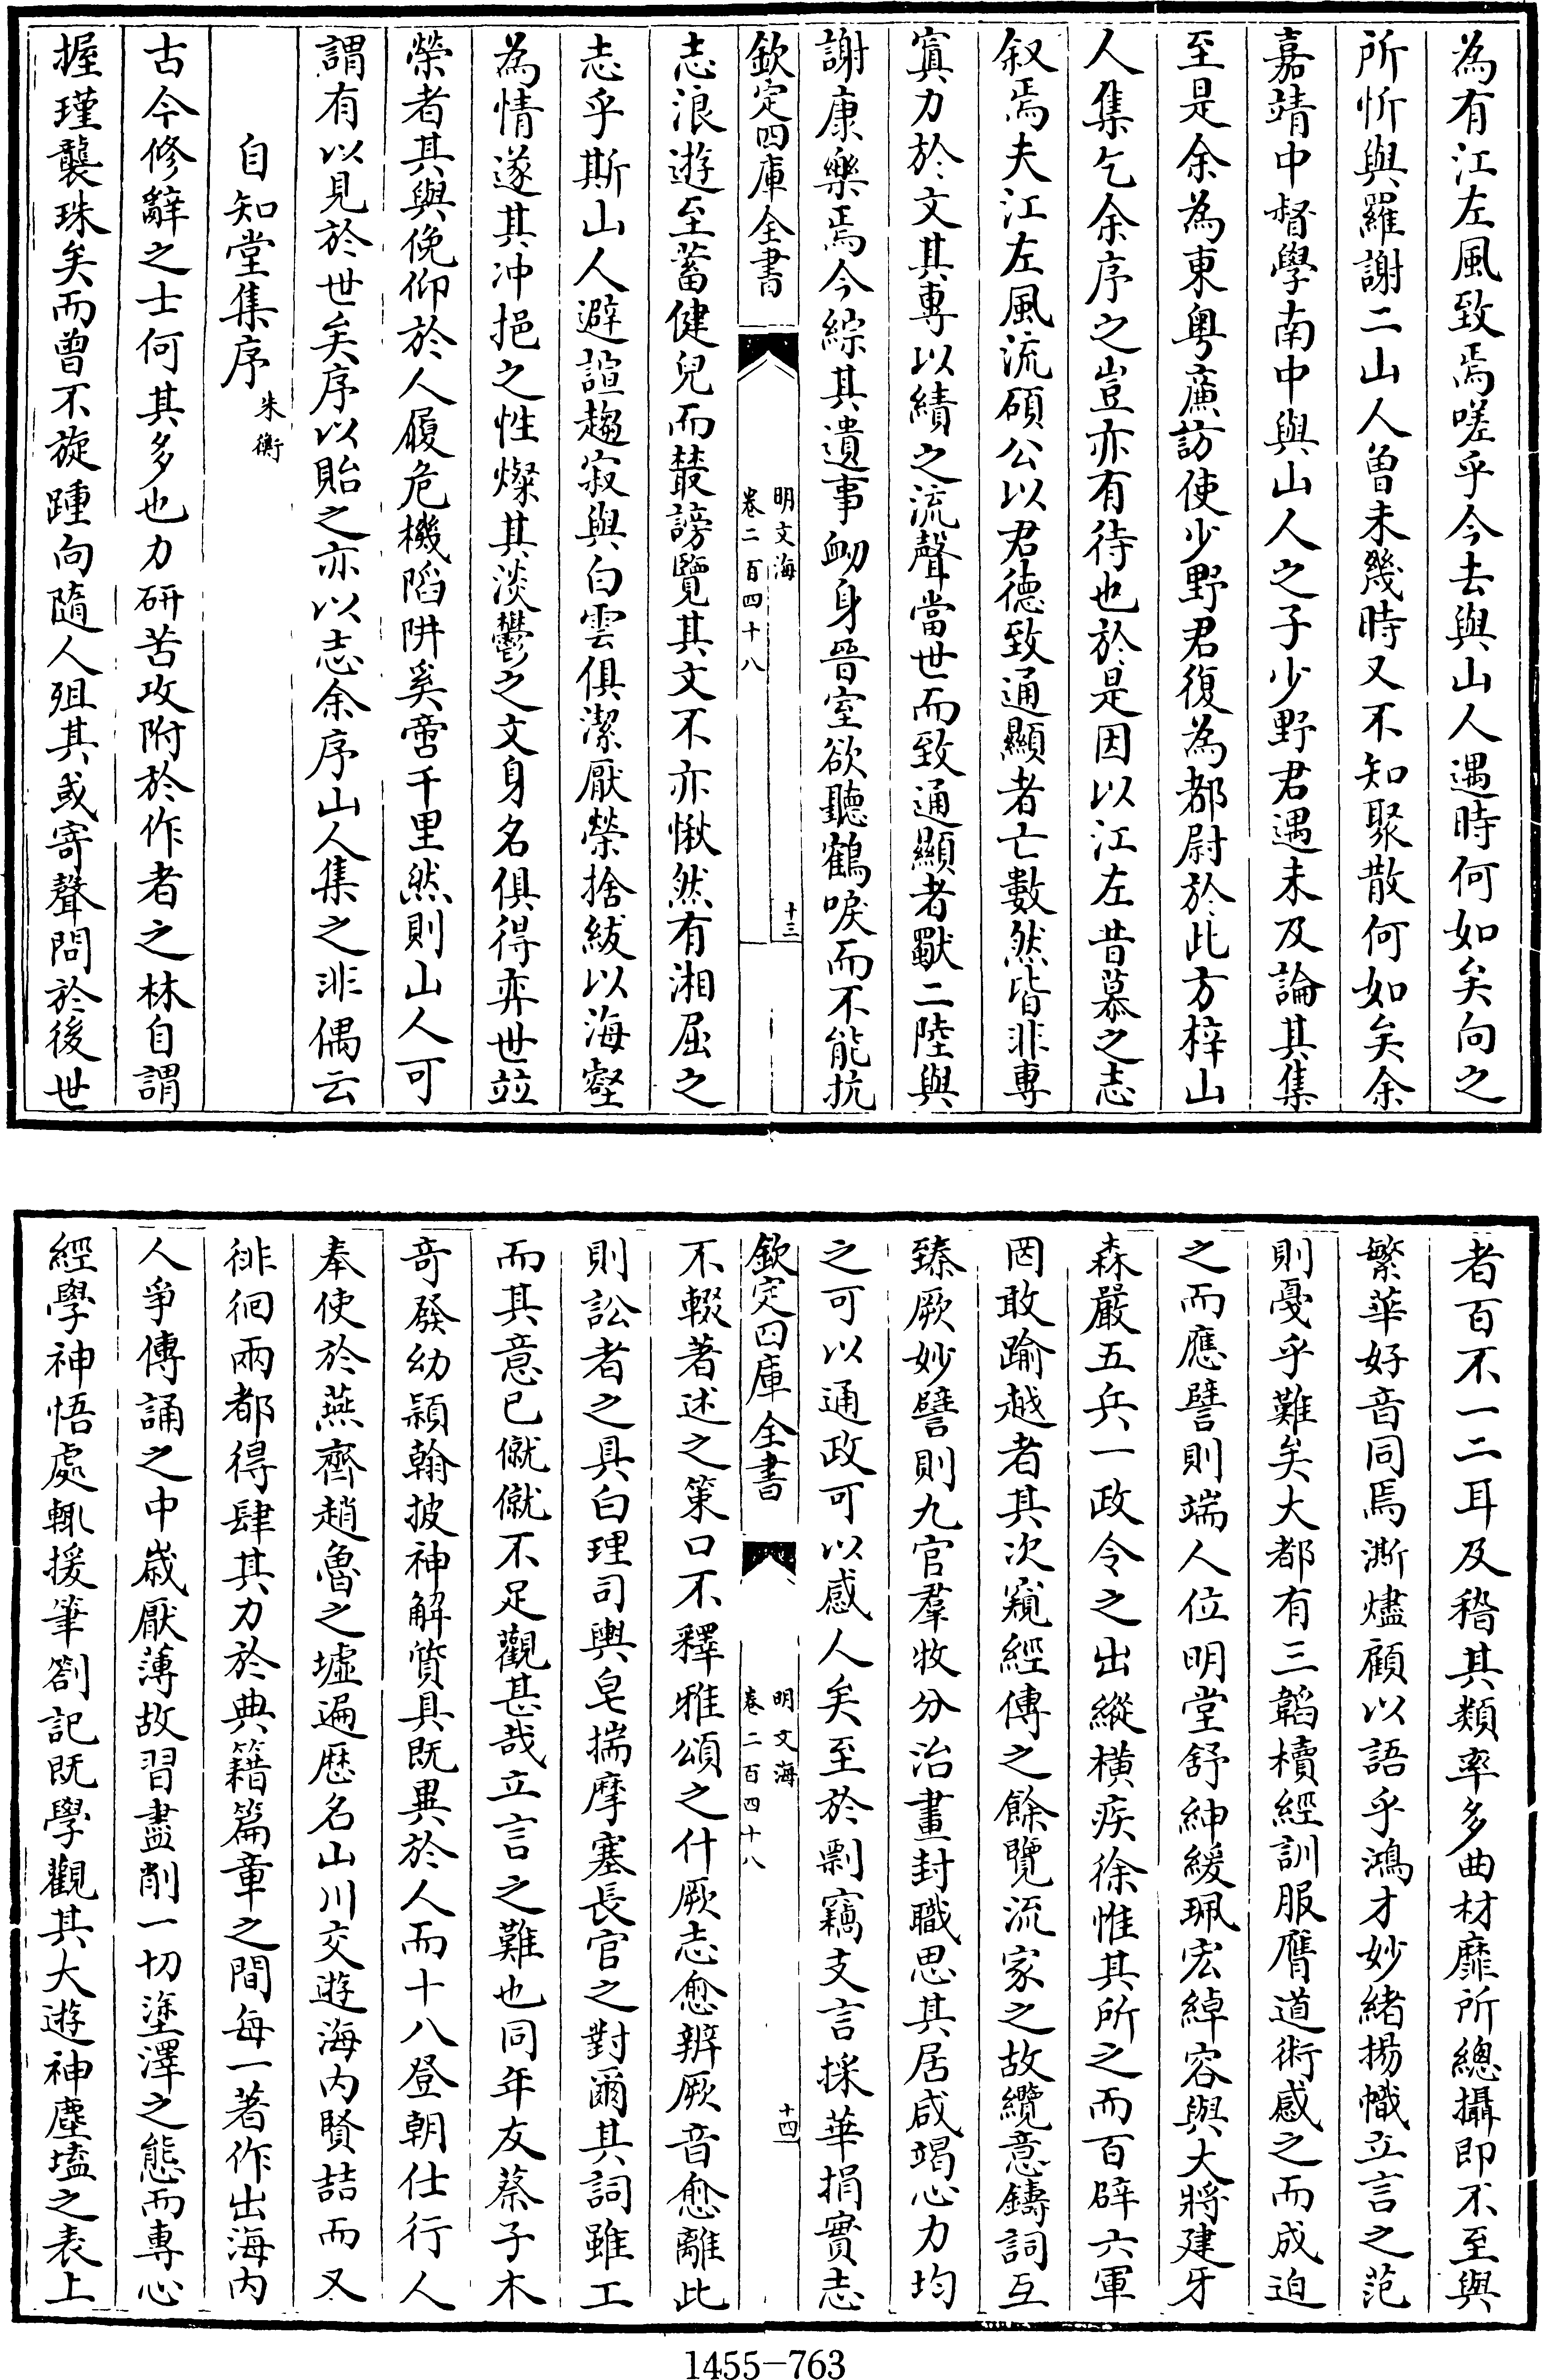 為有江左風致焉嗟乎今去與山人遇時何如矣向之
所忻與羅謝二山人曽未幾時又不知聚散何如矣余
嘉靖中督學南中與山人之子少野君遇未及論其集
至是余為東粤㢘訪使少野君復為都尉於此方梓山
人集乞余序之豈亦有待也於是因以江左昔慕之志
叙焉夫江左風流碩公以君德致通顯者亡數然皆非專
寘力於文其專以績之流聲當世而致通顯者獸二陸與
謝康樂焉今綜其遺事衂身晉室欲聽鶴唳而不能抗
欽定四庫全書
明文海
卷二百四十八
十三
志浪遊至蓄健兒而叢謗覽其文不亦愀然有湘屈之
志乎斯山人避諠趨寂與白雲俱潔厭榮捨紱以海壑
為情遂其冲挹之性燦其淡鬱之文身名俱得弈世竝
榮者其與俛仰於人履危機陷阱奚啻千里然則山人可
謂有以見於世矣序以貽之亦以志余序山人集之非偶云
自知堂集序 朱衡
古今修辭之士何其多也力研苦攻附於作者之林自謂
握瑾襲珠矣而曾不旋踵向隨人殂其或寄聲問於後世
者百不一二耳及稽其類率多曲材靡所總攝即不至與
繁華好音同焉澌燼顧以語乎鴻才妙緒揚幟立言之范
則戞乎難矣大都有三韜櫝經訓服膺道術感之而成迫
之而應譬則端人位明堂舒紳緩珮宏綽容與大將建牙
森嚴五兵一政令之出縱横疾徐惟其所之而百辟六軍
罔敢踰越者其次窺經傳之餘覽流家之故纜意鑄詞互
臻厥妙譬則九官羣牧分治畫封職思其居咸竭心力均
之可以通政可以感人矣至於剽竊支言採華捐實志
欽定四庫全書
明文海
卷二百四十八
十四
不輟著述之策口不釋雅頌之什厥志愈辨厥音愈離此
則訟者之具白理司輿皂揣摩塞長官之對爾其詞雖工
而其意已僦僦不足觀甚哉立言之難也同年友蔡子木
竒發幼穎翰披神解質具既異於人而十八登朝仕行人
奉使於燕齊趙魯之墟遍歴名山川交遊海内賢喆而又
徘徊兩都得肆其力於典籍篇章之間每一著作出海内
人爭傳誦之中歲厭薄故習盡削一切塗澤之態而專心
經學神悟處輒援筆劄記既學觀其大遊神塵壒之表上
1455-763